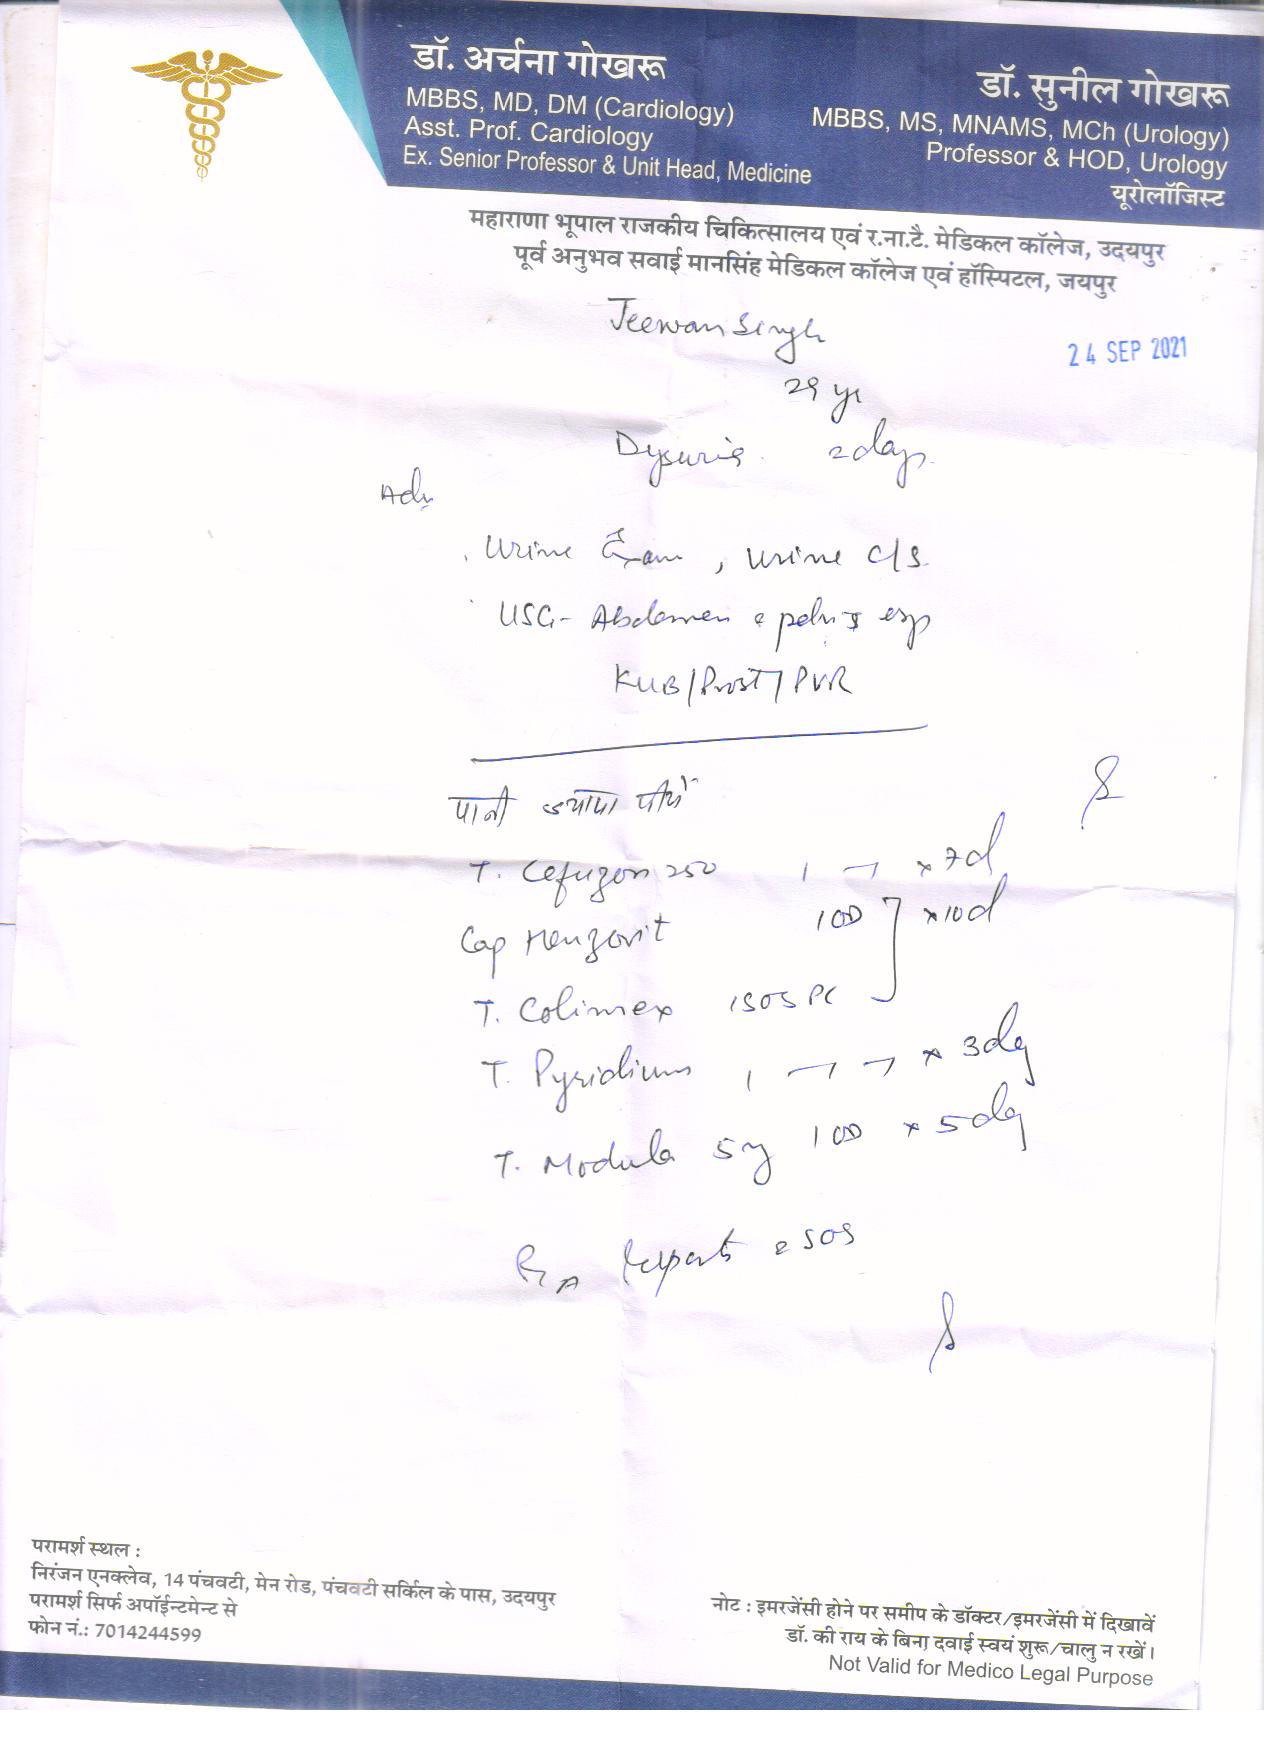 डॉ. अर्चना गोखरू
MBBS, MD, DM (Cardiology)
Asst. Prof. Cardiology
Ex. Senior Professor & Unit Head, Medicine
डॉ. सुनील गोखरू
MBBS, MS, MNAMS, MCh (Urology)
Professor & HOD, Urology
यूरोलॉजिस्ट
महाराणा भूपाल राजकीय चिकित्सालय एवं र.ना.टै. मेडिकल कॉलेज, उदयपुर
पूर्व अनुभव सवाई मानसिंह मेडिकल कॉलेज एवं हॉस्पिटल, जयपुर
Jeewan Singh
24 SEP 2021
29 yr
Dysuria 2 days
Adv
Urine Exam, Urine C/S
USG- Abdomen & pelvis esp
KUB/Prost/PVR
पानी ज्यादा पीयें
T. Cefuzon 250 1 x 7d
Cap 1OD x10d
T. Colimex 1SOS PC
T. Pyridium 1 x 3day
T. Modula 5mg 1OD x 5day
Reports & SOS
परामर्श स्थल :
निरंजन एनक्लेव, 14 पंचवटी, मेन रोड, पंचवटी सर्किल के पास, उदयपुर
परामर्श सिर्फ अपॉईन्टमेन्ट से
फोन नं.: 7014244599
नोट : इमरजेंसी होने पर समीप के डॉक्टर/इमरजेंसी में दिखावें
डॉ. की राय के बिना दवाई स्वयं शुरू/चालु न रखें।
Not Valid for Medico Legal Purpose